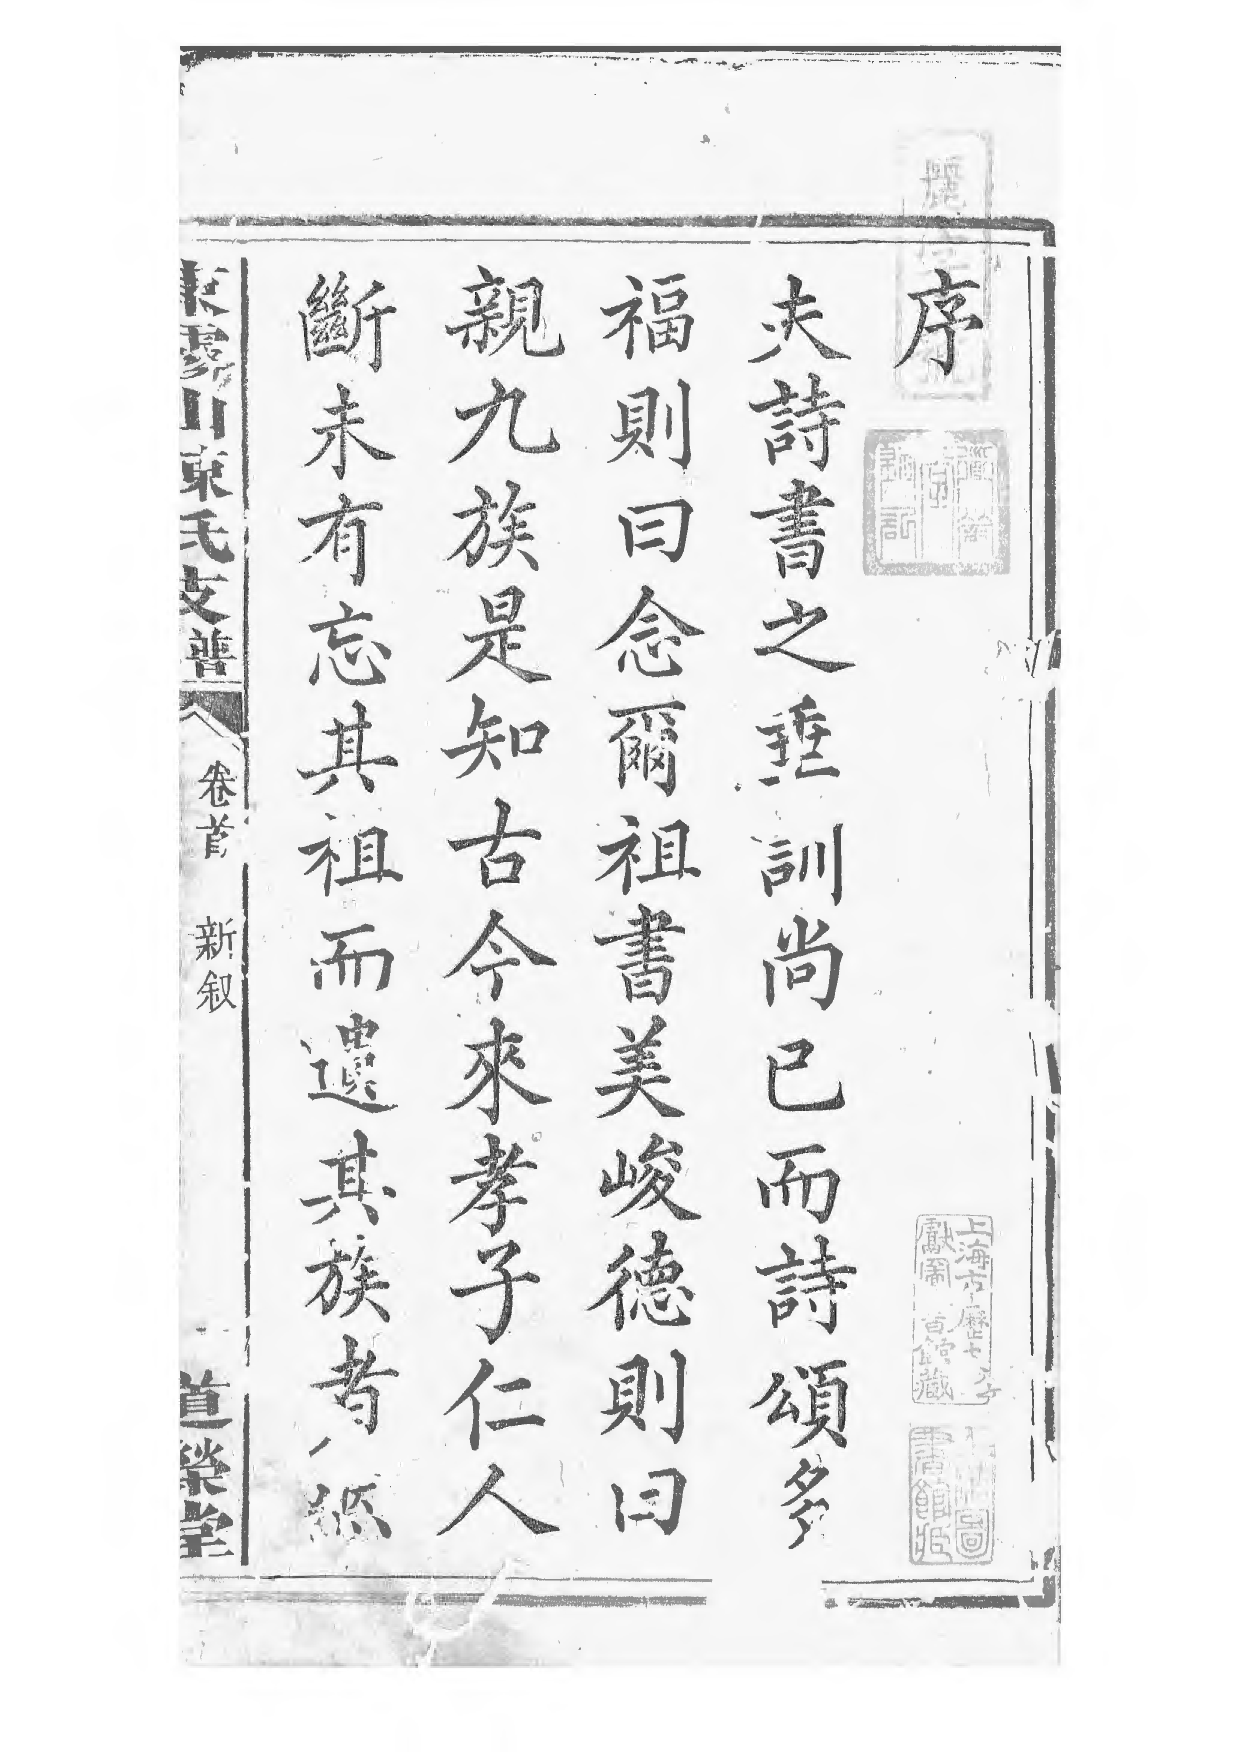 序
夫詩書之垂訓尚已而詩頌多
福則曰念爾祖書美峻德則曰
親九族是知古今來孝子仁人
斷未有忘其祖而遺其族者
東雲山東氏支譜
卷首
新叙
道榮堂
上海市歷史文獻圖書館藏
圖書館藏